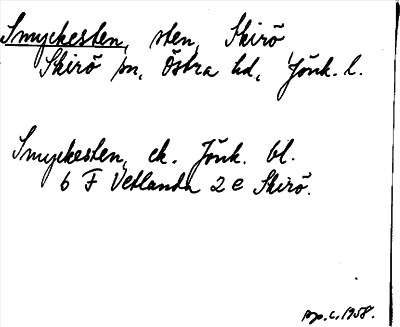 Smyckesten, sten, Skirö
Skirö sn, Östra hd, Jönk. l.
Smyckesten, ek. Jönk. bl.
6 F Vetlanda 2 e Skirö.
c. 1958.